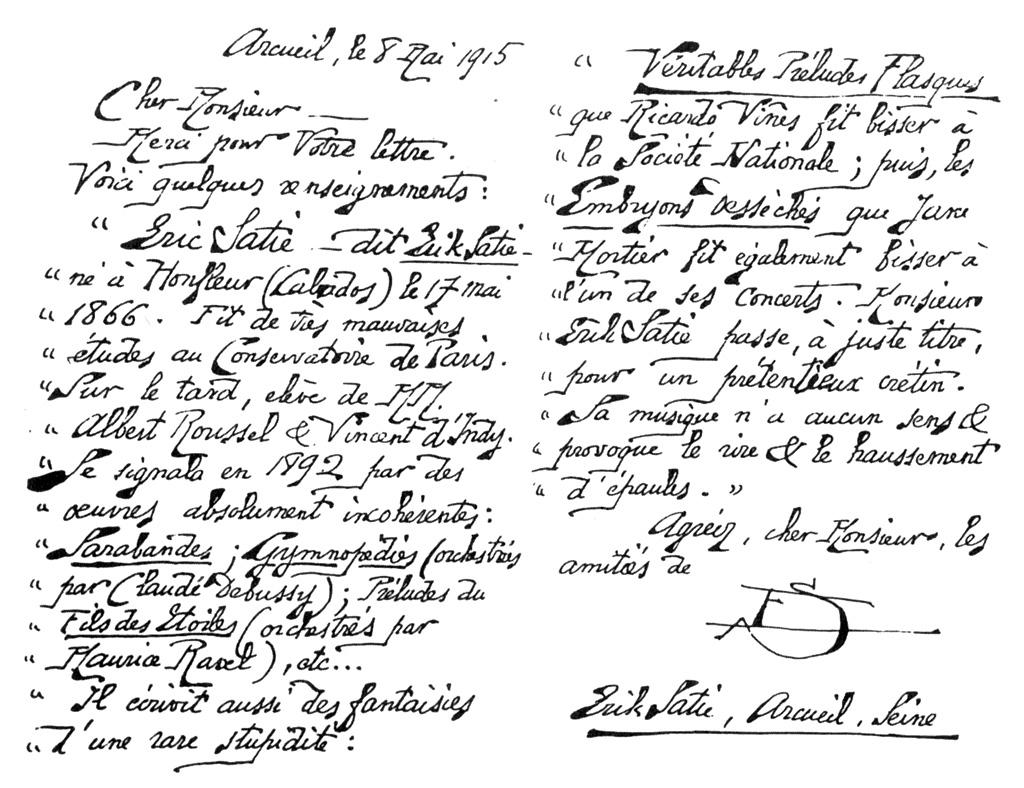 Arcueil, le 8 Mai 1915
Cher Monsieur —
— Merci pour Votre lettre.
Voici quelques renseignements :
" Eric Satie — dit Erik Satie —
" né à Honfleur (Calvados) le 17 mai
" 1866. Fit de très mauvaises
" études au Conservatoire de Paris.
" Sur le tard, elève de MM.
" Albert Roussel & Vincent d'Indy.
" Se signala en 1892 par des
" œuvres absolument incohérentes :
" Sarabandes ; Gymnopédies (orchestrés
" par Claude Debussy) ; Préludes du
" Fils des Etoiles (orchestrés par
" Maurice Ravel), etc...
" Il écrivit aussi des fantaisies
" d'une rare stupidité :
" Véritables Préludes Flasques
" que Ricardo Vinès fit bisser à
" la Société Nationale ; puis, les
" Embryons desséchés que Jane
" Mortier fit également bisser à
" l'un de ses concerts. Monsieur
" Erik Satie passe, à juste titre,
" pour un prétentieux crétin.
" Sa musique n'a aucun sens &
" provoque le rire & le haussement
" d'épaules. »
Agréez, cher Monsieur, les
amitiés de
ES
Erik Satie, Arcueil, Seine